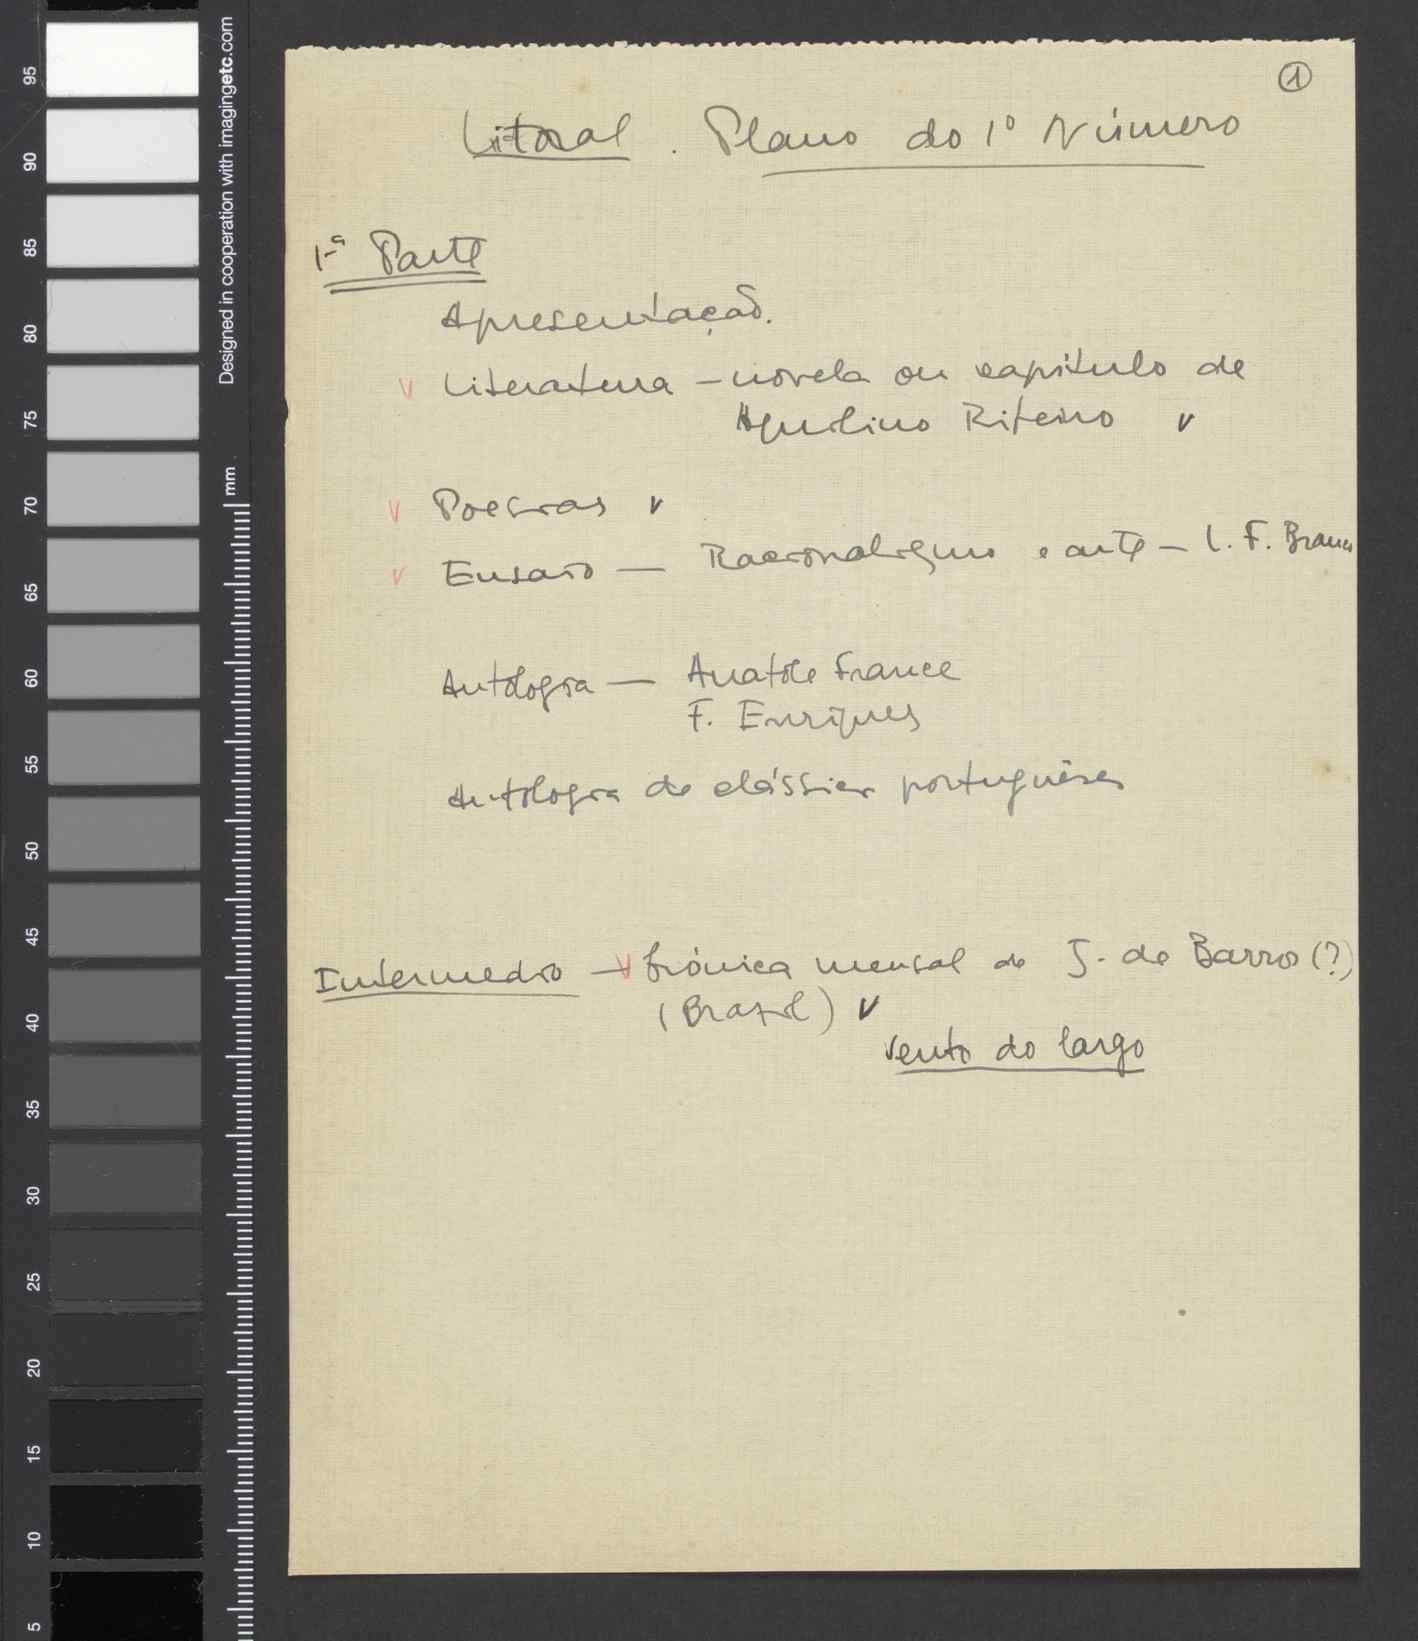 ①
Litoral. Plano do 1º Número
1ª Parte
Apresentação.
v Literatura — novela ou capítulo de
Aquilino Ribeiro v
v Poesias v
v Ensaio — Racionalismo e arte — L. F. Branco
Antologia — Anatole France
F. Enriques
Antologia de clássicos portugueses
Intermedio — v Crónica mensal de J. de Barros (?)
(Brazil) v
Vento do largo
Designed in cooperation with imagingetc.com
mm
95
90
85
80
75
70
65
60
55
50
45
40
35
30
25
20
15
10
5